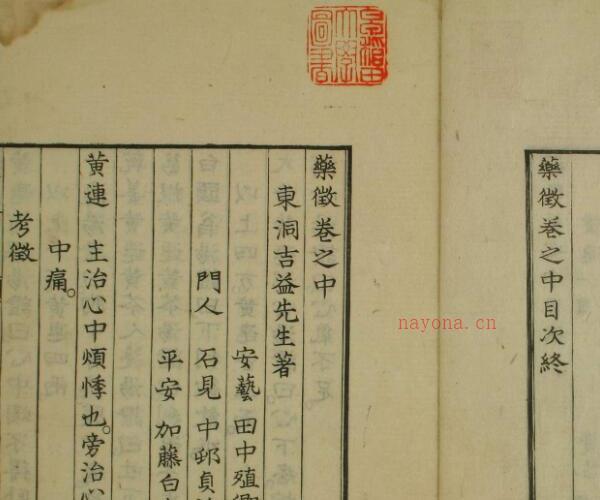 早稻田
大學
圖書
藥徵卷之中目次終
藥徵卷之中
東洞吉益先生著
安藝 田中殖
門人 石見 中邨貞
平安 加藤白
黃連 主治心中煩悸也。旁治心
中痛。
考徵
nayona.cn